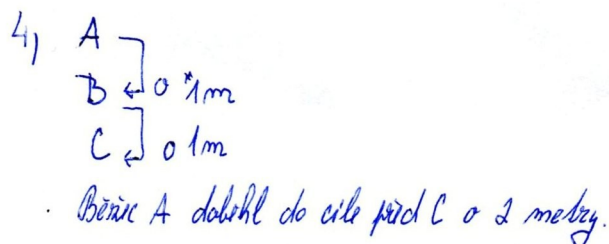 4) A
B o 1m
C o 1m
Běžec A doběhl do cíle před C o 2 metry.